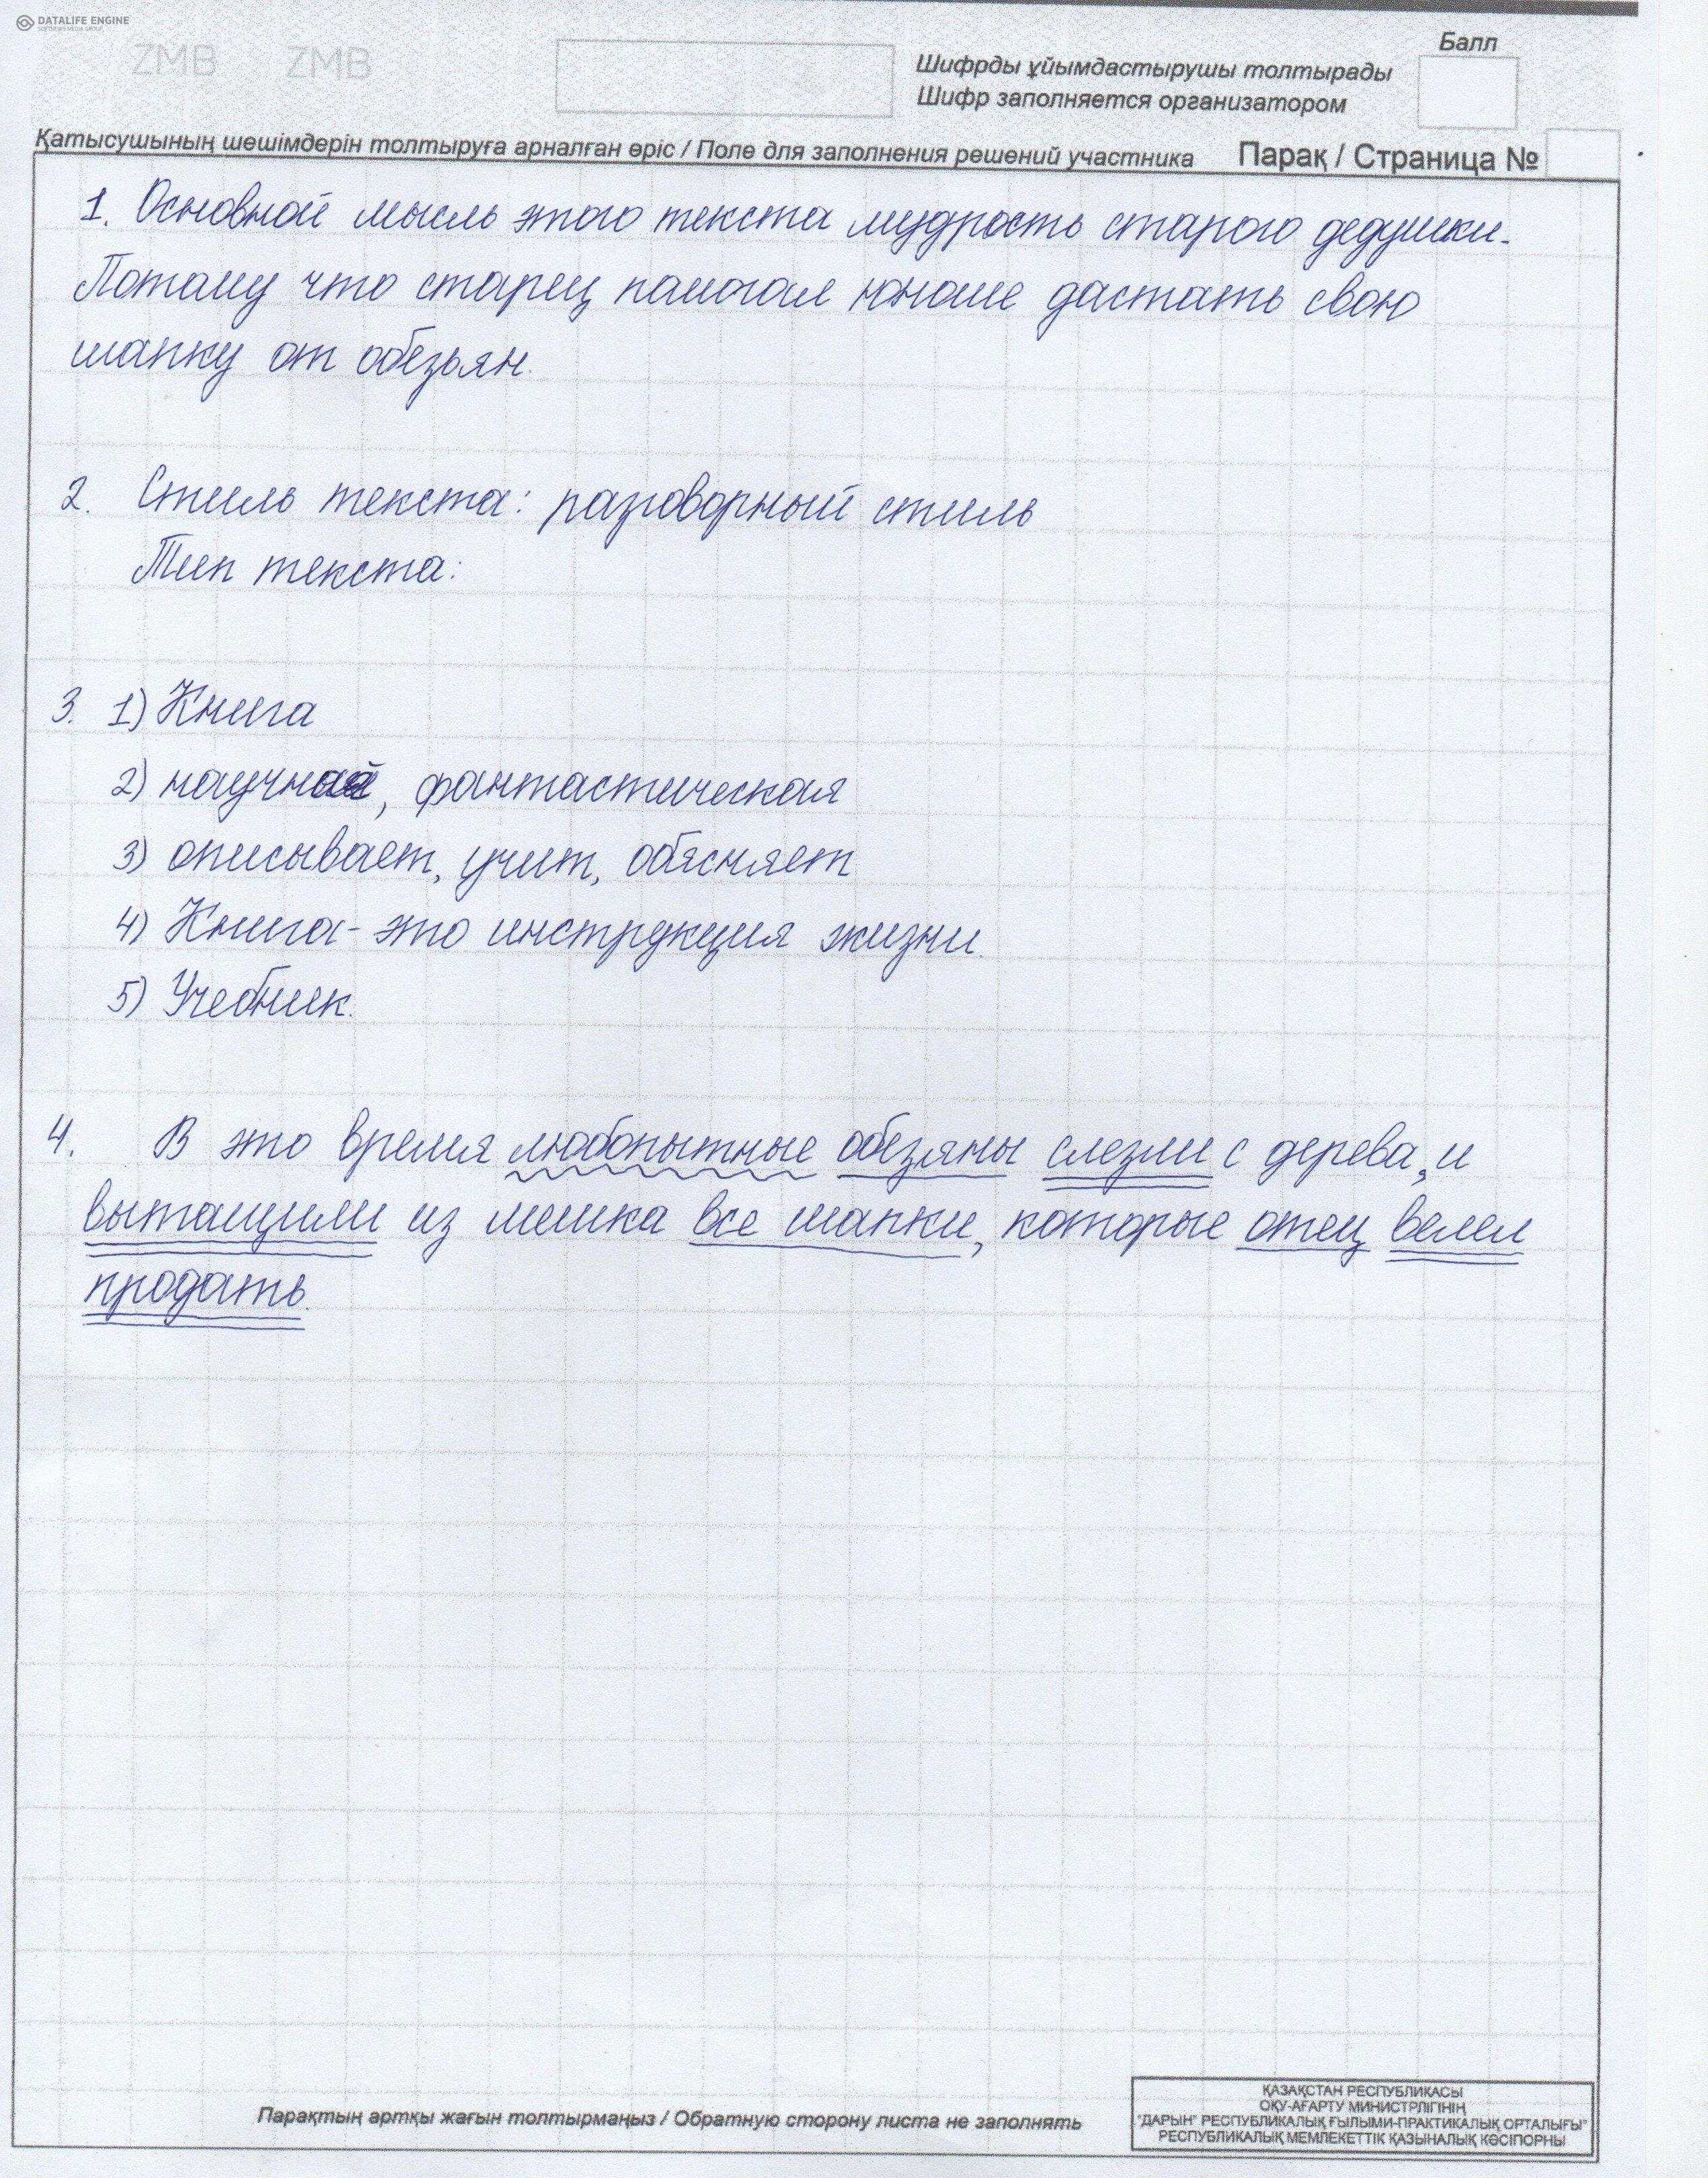 DATALIFE ENGINE
SOFTNEWS MEDIA GROUP
ZMB ZMB
Балл
Шифрды ұйымдастырушы толтырады
Шифр заполняется организатором
Қатысушының шешімдерін толтыруға арналған өріс / Поле для заполнения решений участника Парақ / Страница №
1. Основной мысль этого текста мудрость старого дедушки.
Потому что старец памогал юноше дастать свою
шапку от обезьян.
2. Стиль текста: разговорный стиль
Тип текста:
3. 1) Книга
2) , фантастическая
3) описывает, учит, обясняет
4) Книга - это инструкция жизни.
5) Учебник.
4. В это время любопытные обезяны слезли с дерева, и
вытащили из мешка все шапки, которые отец велел
продать.
Парақтың артқы жағын толтырмаңыз / Обратную сторону листа не заполнять
ҚАЗАҚСТАН РЕСПУБЛИКАСЫ
ОҚУ-АҒАРТУ МИНИСТРЛІГІНІҢ
"ДАРЫН" РЕСПУБЛИКАЛЫҚ ҒЫЛЫМИ-ПРАКТИКАЛЫҚ ОРТАЛЫҒЫ"
РЕСПУБЛИКАЛЫҚ МЕМЛЕКЕТТІК ҚАЗЫНАЛЫҚ КӘСІПОРНЫ